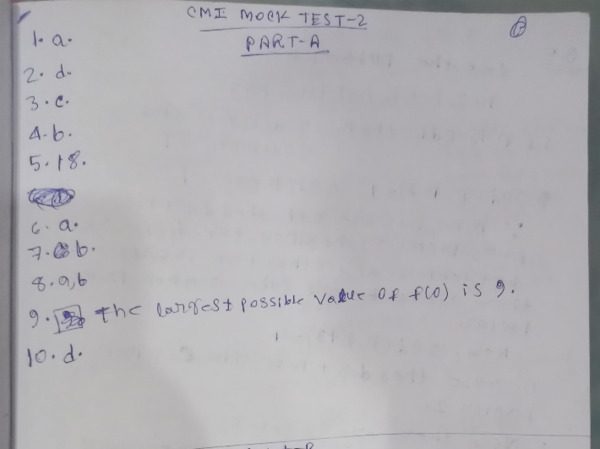 CMI MOCK TEST-2
PART-A
1. a.
2. d.
3. c.
4. b.
5. 18.
6. a.
7. b.
8. a,b
9. The largest possible value of f(0) is 9.
10. d.